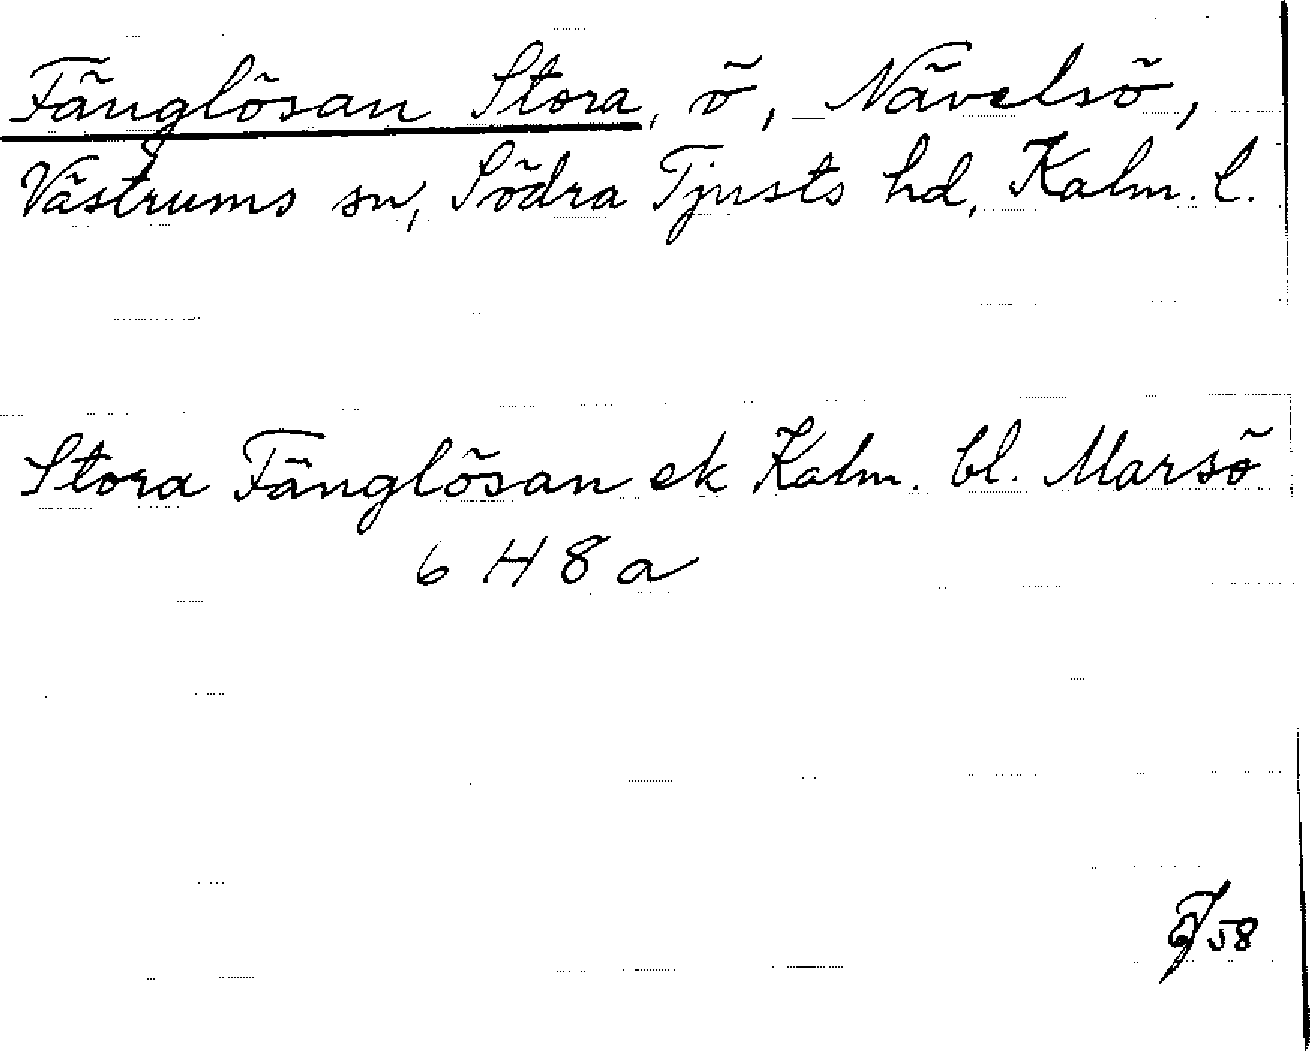 Fänglösan Stora, ö, Nävelsö,
Västrums sn, Södra Tjusts hd, Kalm. l.
Stora Fänglösan ek Kalm. bl. Marsö
6 H 8 a
58